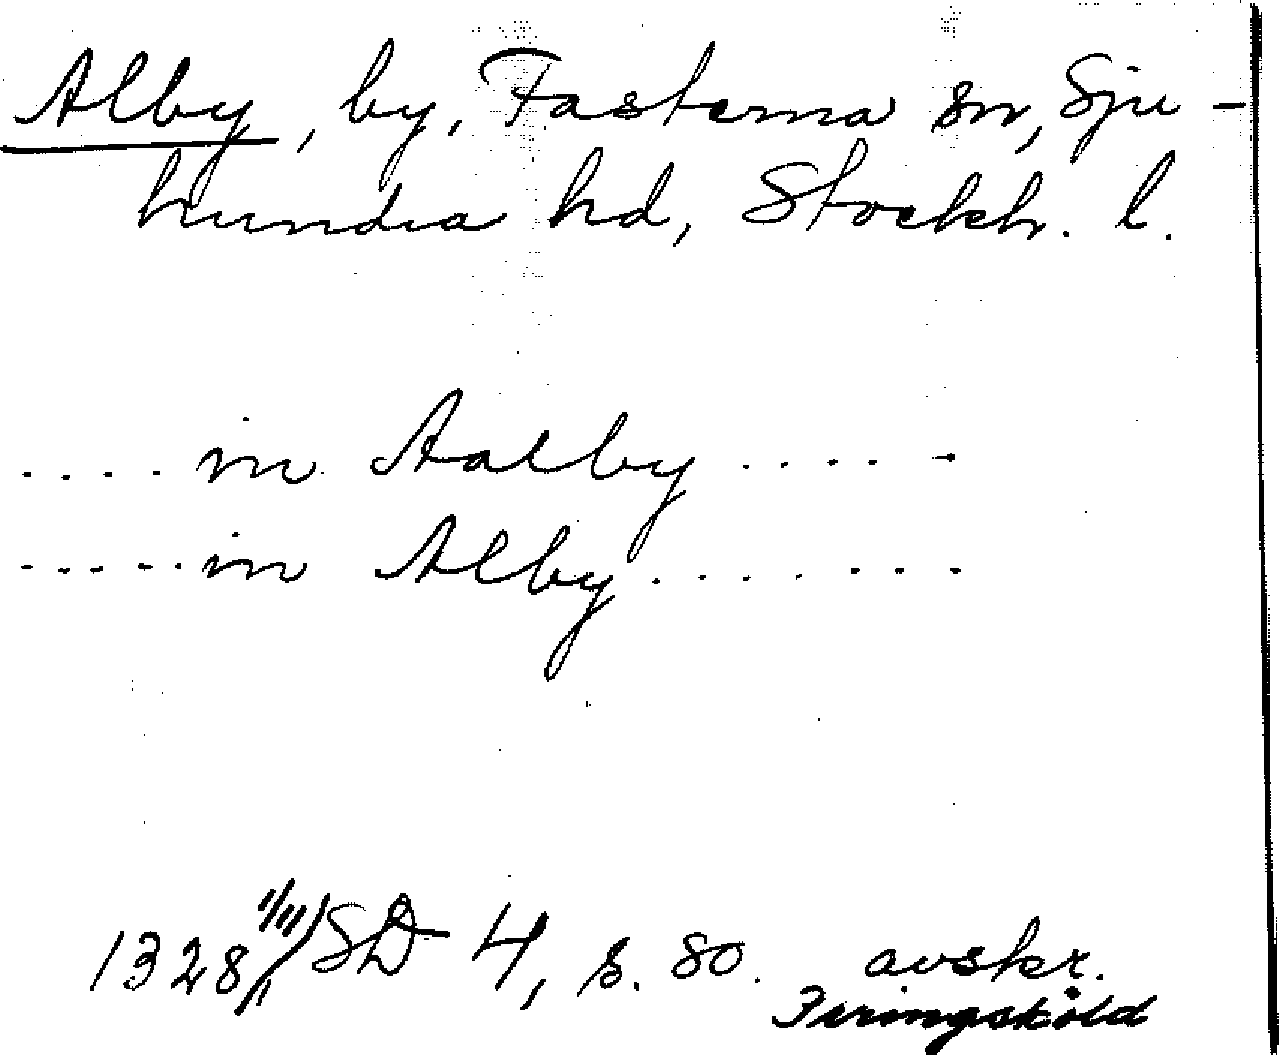 Alby, by, Fasterna sn, Sju-
hundra hd, Stockh. l.
.... in Aalby .....
..... in Alby ........
1328 SD 4, s. 80. avskr.
Peringsköld